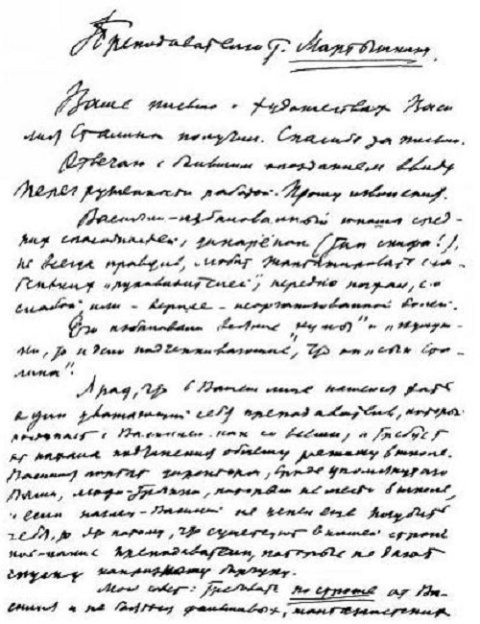 Преподавателю т. Мартышину.
Ваше письмо о художествах Васи-
лия Сталина получил. Спасибо за письмо.
Отвечаю с большим опозданием ввиду
перегруженности работой. Прошу извинения.
Василий – избалованный юноша сред-
них способностей, дикарёнок (тип скифа!),
не всегда правдив, любит шантажировать сла-
беньких „руководителей", нередко нахал, со
слабой или – вернее – неорганизованной волей.
Его избаловали всякие „кумы" и „кумуш-
ки", то и дело подчёркивающие, что он „сын Ста-
лина".
Я рад, что в Вашем лице нашёлся хоть
один уважающий себя преподаватель, который
поступает с Василием, как со всеми, и требует
от нахала подчинения общему режиму в школе.
Василия портят директора, вроде упомянутого
Вами, люди-тряпки, которым не место в школе,
и если наглец-Василий не успел ещё погубить
себя, то это потому, что существуют в нашей стране
кое-какие преподаватели, которые не дают
спуску капризному барчуку.
Мой совет: требовать построже от Ва-
силия и не бояться фальшивых, шантажистских